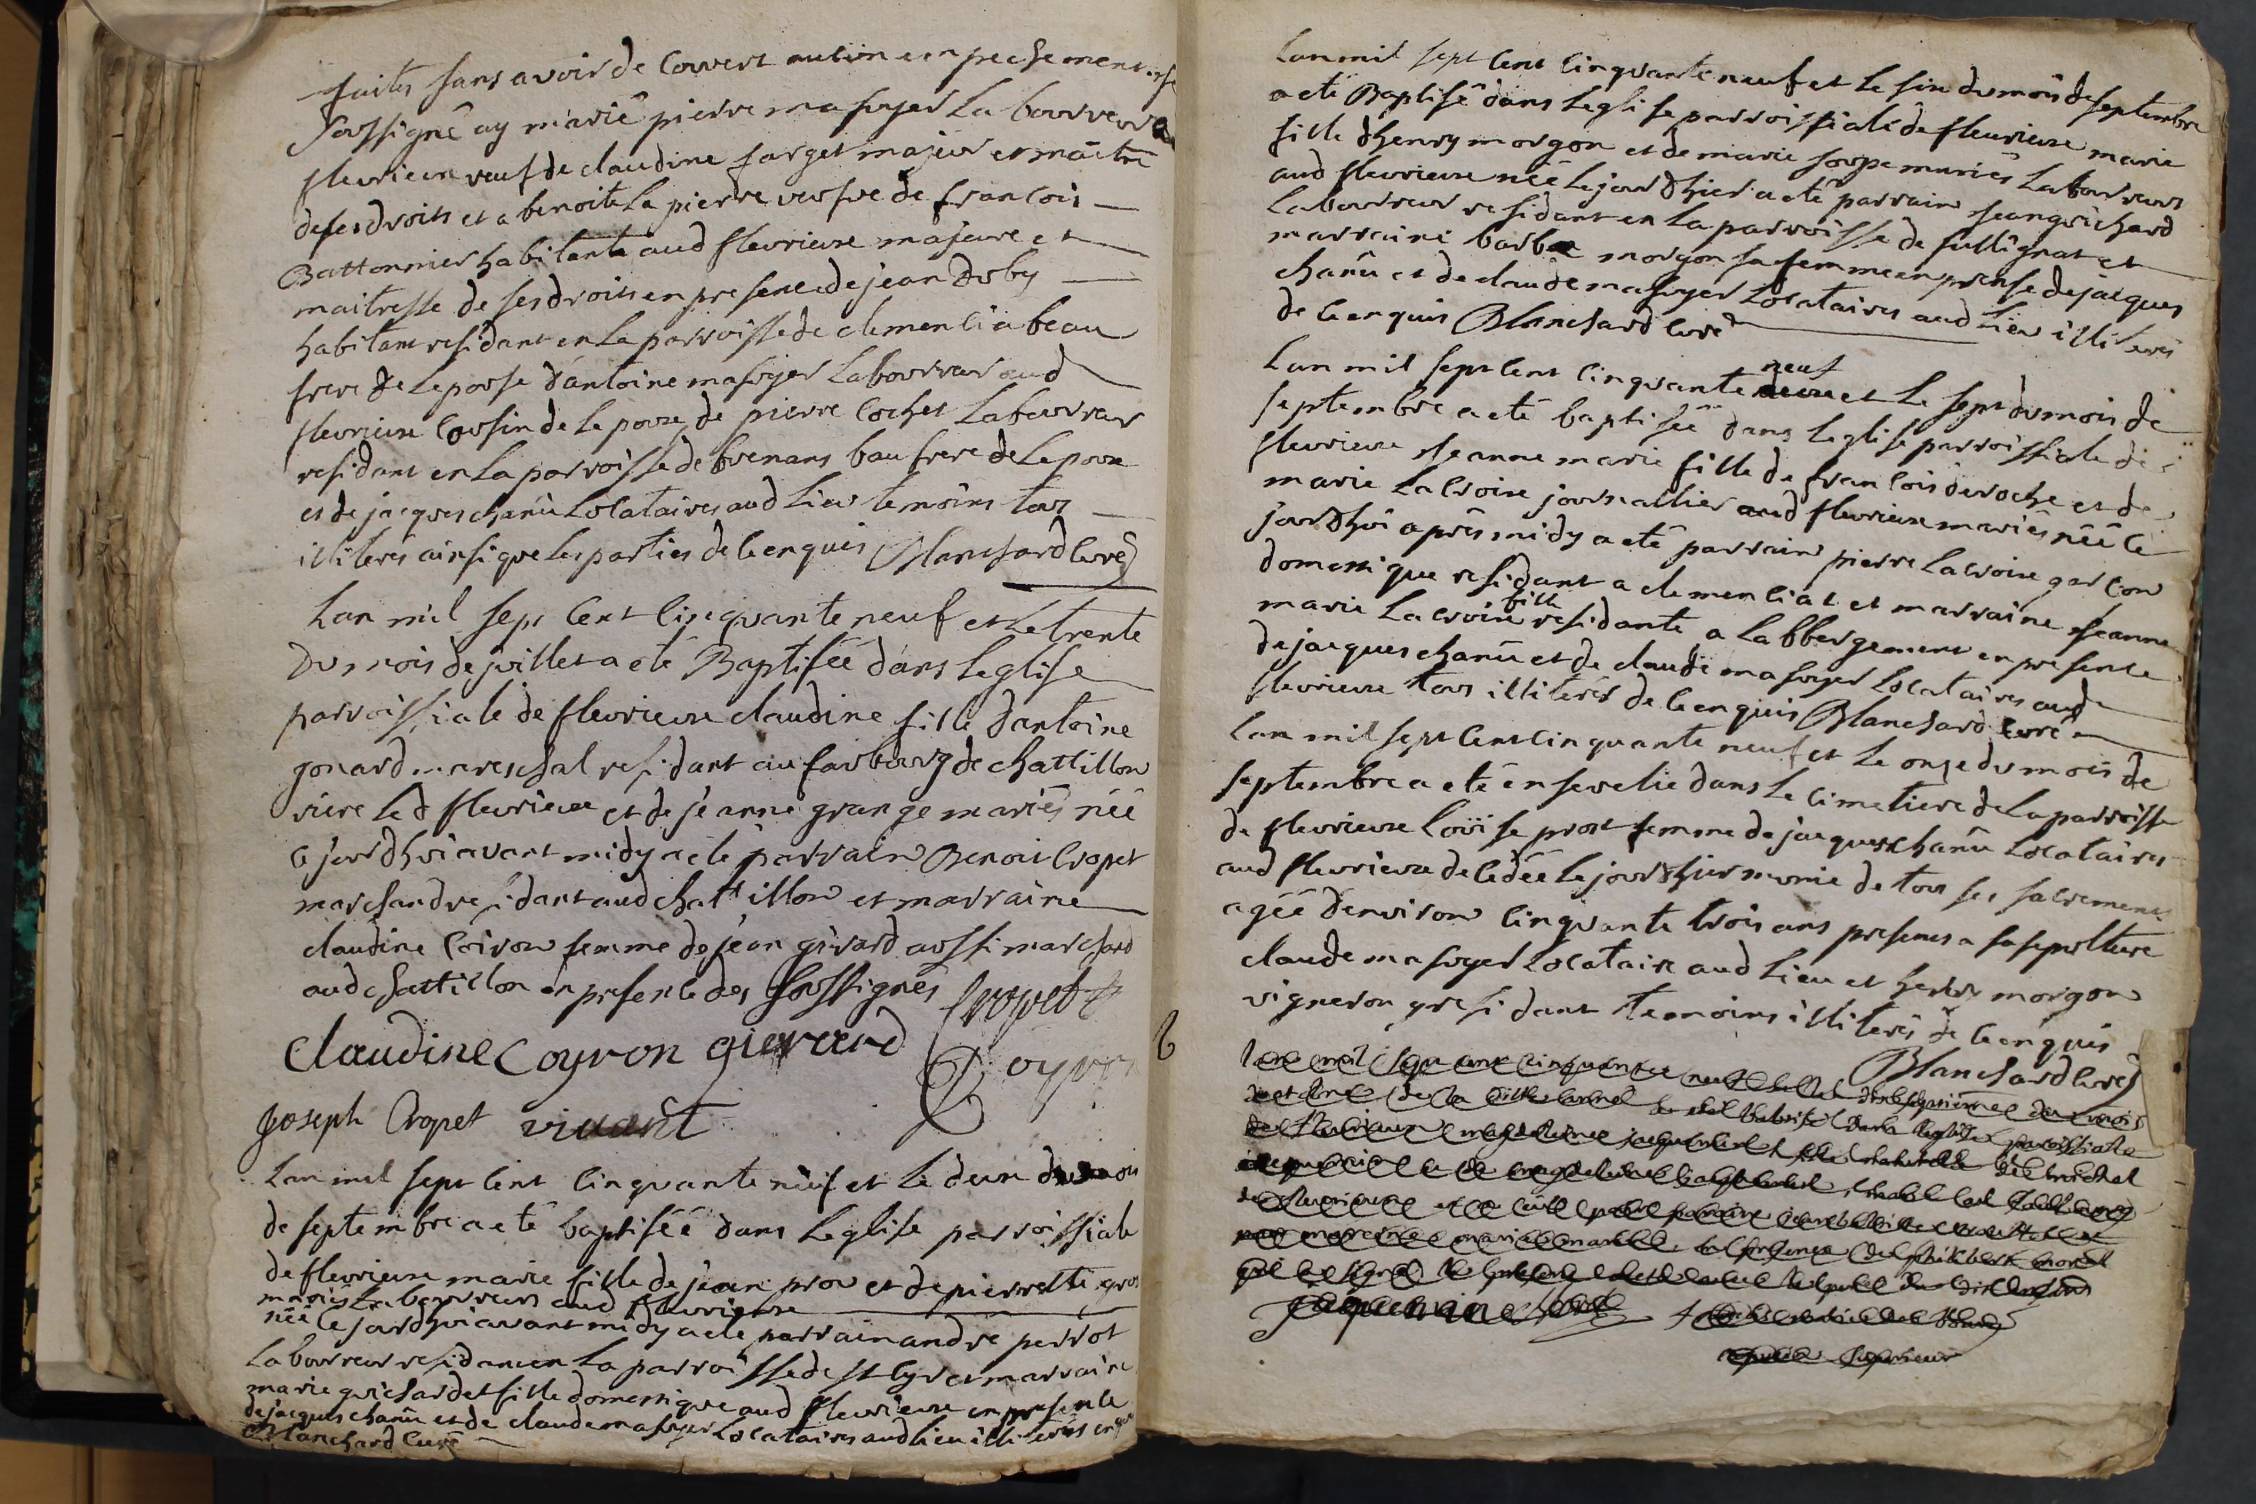 faites sans avoir de couvert aucun enpechement
soussigné ay marié pierre masuyer laboureur a
fleurieux veuf de claudine farget majeur et maitre
de ses droits et a benoite la pierre veufve de francois
Battonnier habitante aud fleurieux majeure et
maitresse de ses droits en presence de jean Doby
habitant residant en la parroisse de clemencia beau
frere de lepouse dantoine masuyer laboureur aud
fleurieux cousin de lepoux, de pierre cochet laboureur
residant en la parroisse de brenans bau frere de lepoux
et de jacques chanû locataires aud lieu temoins tous
illiterés ainsi que les parties de ce enquis Blanchard curé
Lan mil sept cent cinquante neuf et le trente
du mois de juillet a eté Baptisée dans leglise
parroissiale de fleurieux claudine fille dantoine
gonard mareschal residant au faubourg de chattillon
riere led fleurieux et de jeanne grange mariés née
ce jourdhui avant midy a eté parrain Benoit Cropet
marchand residant aud chattillon et marraine
claudine Coiron femme de jean girard aussi marchand
aud chattillon en presence des soussignés Cropet
Claudine Coyron gierard Coyron
Joseph Cropet vivant
Lan mil sept cent cinquante neuf et le deux du mois
de septembre a eté baptiséé dans leglise parroissiale
de fleurieux marie fille de jean prou et de pierrette gros
mariés laboureurs aud fleurieux
née ce jourdhui avant midy a eté parrain andré perrot
laboureur residant en la parroisse de st Cyr et marraine
marie guichardet fille domestique aud fleurieux en presence
de jacques chanû et de claude masuyer locataires aud lieu illiterés enquis
Blanchard curé
Lan mil sept cent cinquante neuf et le six du mois de septembre
a eté Baptisé dans leglise parroissiale de fleurieux marie
fille dhenry morgon et de marie soupe mariés laboureurs
aud fleurieux née le jour dhier a eté parrain jean guichard
laboureur residant en la parroisse de sullignat et
marraine barbe morgon sa femme en presence de jacques
chanû et de claude masuyer locataires aud lieu illiterés
de ce enquis Blanchard curé
Lan mil sept cent cinquante neuf et le sept du mois de
septembre a eté baptisée dans leglise parroissiale de
fleurieux jeanne marie fille de francois deroche et de
marie lacroix journallier aud fleurieux mariés née ce
jourdhui après midy a eté parrain pierre lacroix garcon
domestique residant a clemenciat et marraine jeanne
marie lacroix fille residante a labbergement en presence
de jacques chanû et de claude masuyer locataires aud
fleurieux tous illiterés de ce enquis Blanchard curé
Lan mil sept cent cinquante neuf et le onze du mois de
septembre a eté ensevelie dans le cimetiere de la parroisse
de fleurieux loüise prost femme de jacques chanû locataires
aud fleurieux decedée le jour dhier munie de tous ses sacremens
agée denviron cinquante trois ans presens a sa sepulture
claude masuyer locataire aud lieu et henry morgon
vigneron y residant temoins illiterés de ce enquis
Blanchard curé
Lan mil sept cent cinquante neuf du mois
de la
de fleurieux magdelaine jacquemine fille naturelle de michel
de fleurieux
pour marraine marie
Jacquemine
superieur